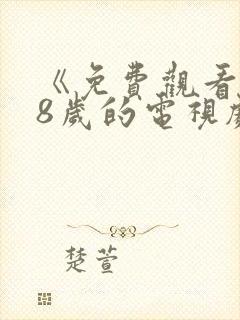 《免費觀看
8歲的電視
楚萱